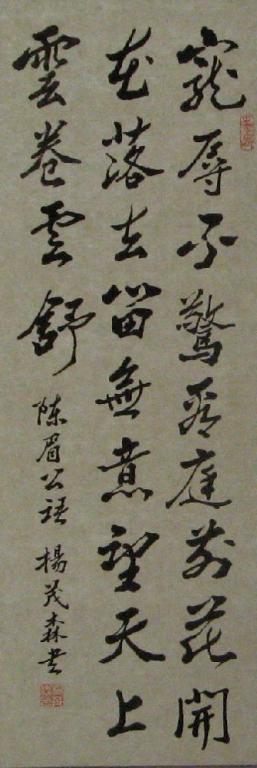 寵辱不驚看庭前花開
花落去留無意望天上
雲卷雲舒
陳眉公語 楊茂森書